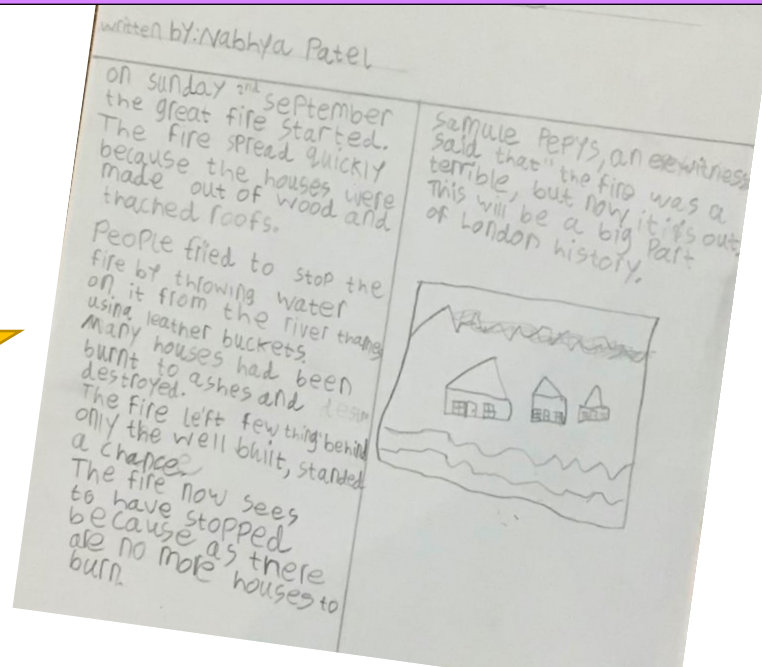 written by: Nabhya Patel
on sunday 2nd September
the great fire started.
The fire spread quickly
because the houses were
made out of wood and
thached roofs.
People tried to stop the
fire by throwing water
on it from the river thames
using leather buckets.
Many houses had been
burnt to ashes and
destroyed.
The fire left few thing behind
only the well built, standed
a chance.
The fire now sees
to have stopped
because as there
are no more houses to
burn.
Samule Pepys, an eyewitness
said that "the fire was a
terrible, but now it is out.
This will be a big Part
of London history.